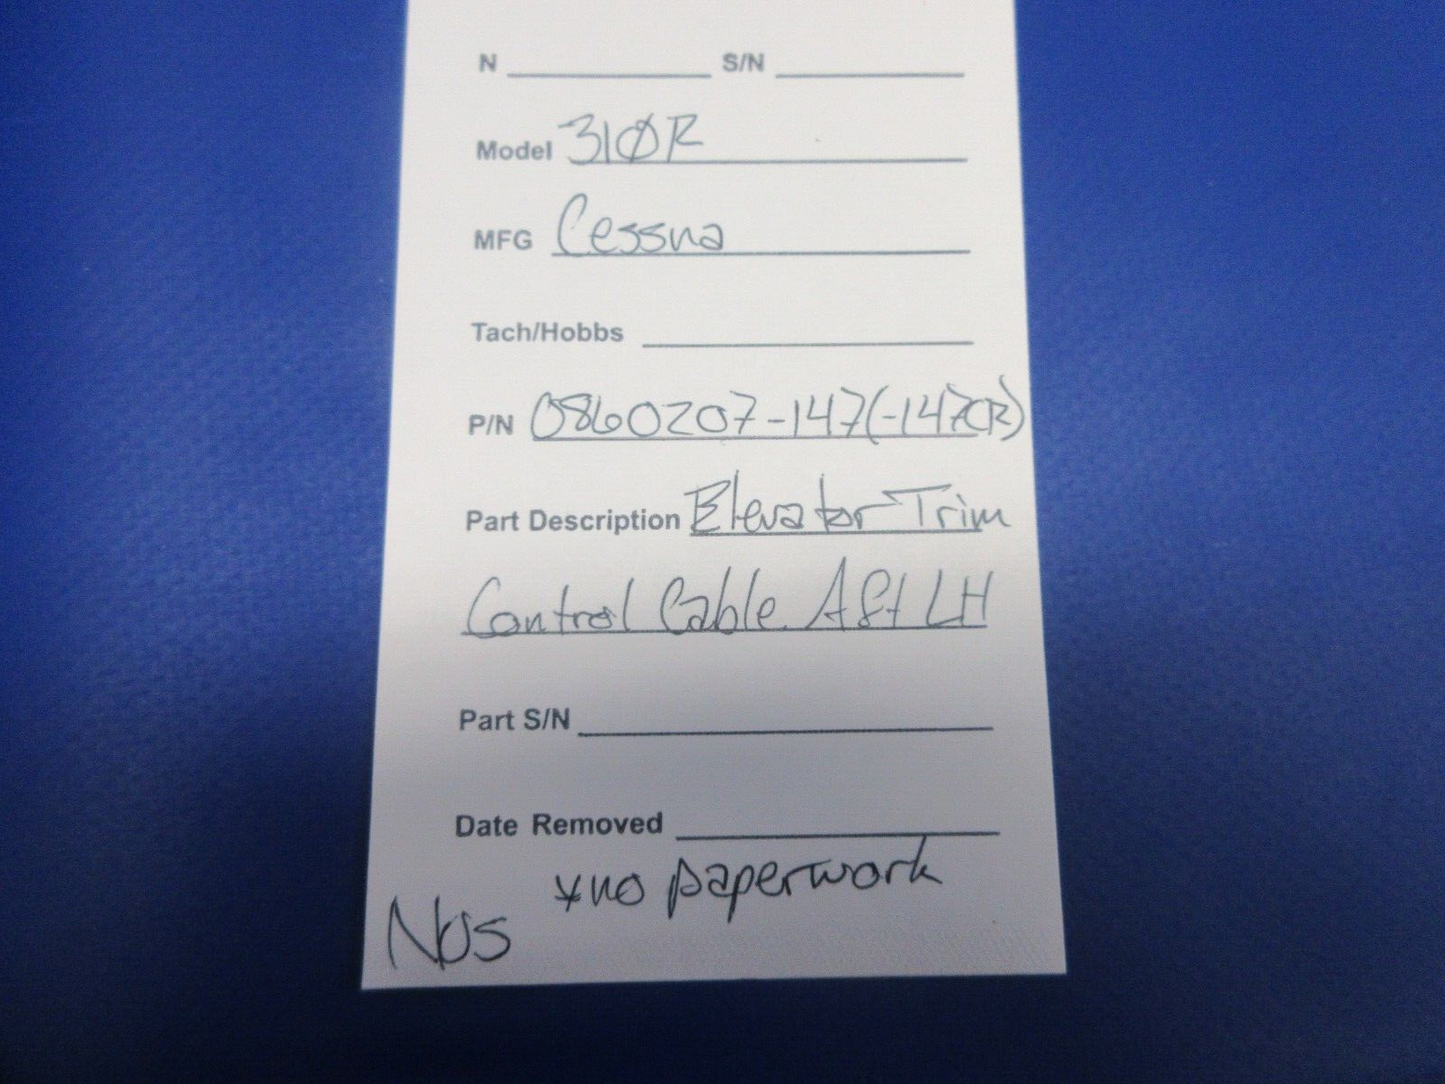 N S/N
Model 310R
MFG Cessna
Tach/Hobbs
P/N 0860207-147(-147CR)
Part Description Elevator Trim
Control Cable Aft LH
Part S/N
Date Removed
*no paperwork
NOS